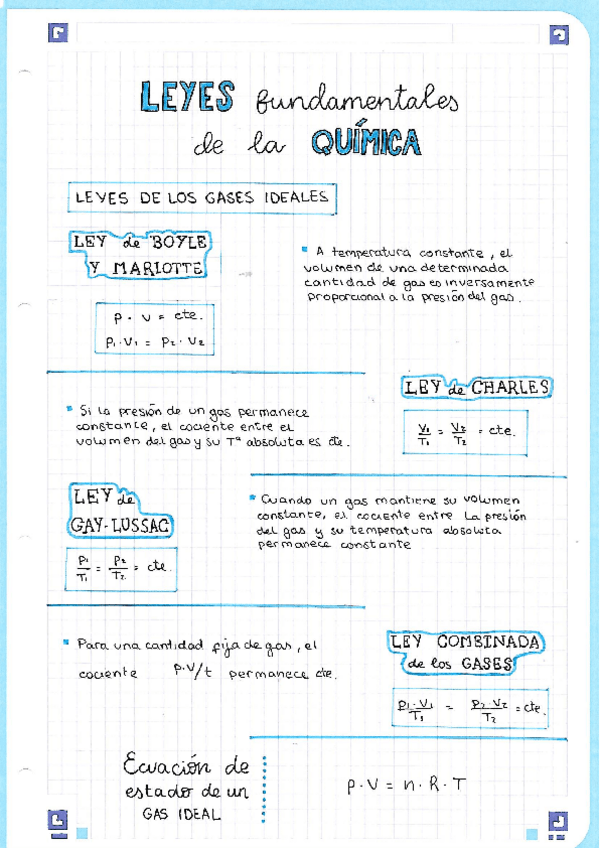 LEYES fundamentales
de la QUÍMICA
LEYES DE LOS GASES IDEALES
LEY de BOYLE
Y MARIOTTE
P. V = cte.
P₁·V₁ = P₂·V₂
A temperatura constante, el
volumen de una determinada
cantidad de gas es inversamente
proporcional a la presión del gas.
LEY de CHARLES
V₁/T₁ = V₂/T₂ = cte.
Si la presión de un gas permanece
constante, el cociente entre el
volumen del gas y su Tª absoluta es cte.
LEY de
GAY-LUSSAC
P₁/T₁ = P₂/T₂ = cte.
Cuando un gas mantiene su volumen
constante, el cociente entre la presión
del gas y su temperatura absoluta
permanece constante
Para una cantidad fija de gas, el
cociente P.V/t permanece cte.
LEY COMBINADA
de los GASES
P₁·V₁/T₁ = P₂·V₂/T₂ = cte.
Ecuación de
estado de un
GAS IDEAL
P.V = n.R.T